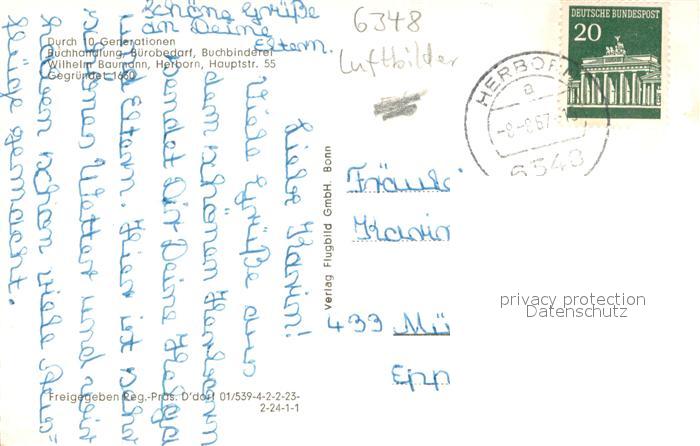 Schöne Grüße
an Deine
Eltern.
6348
Luftbilder
Durch 10 Generationen
Buchhandlung, Bürobedarf, Buchbinderei
Wilhelm Baumann, Herborn, Hauptstr. 55
Gegründet 1650
DEUTSCHE BUNDESPOST
20
HERBORN
a
-8.-8.67-
6348
Liebe Karin!
Viele Grüße aus
dem schönen Herborn
sendet Dir Deine Helga
und Eltern. Hier ist sehr
schönes Wetter und wir
haben schon viele Aus-
flüge gemacht.
Verlag Flugbild GmbH. Bonn
Fräul.
Karin
433 Mü
Epp
privacy protection
Datenschutz
Freigegeben Reg.-Präs. D'dorf 01/539-4-2-2-23-
2-24-1-1